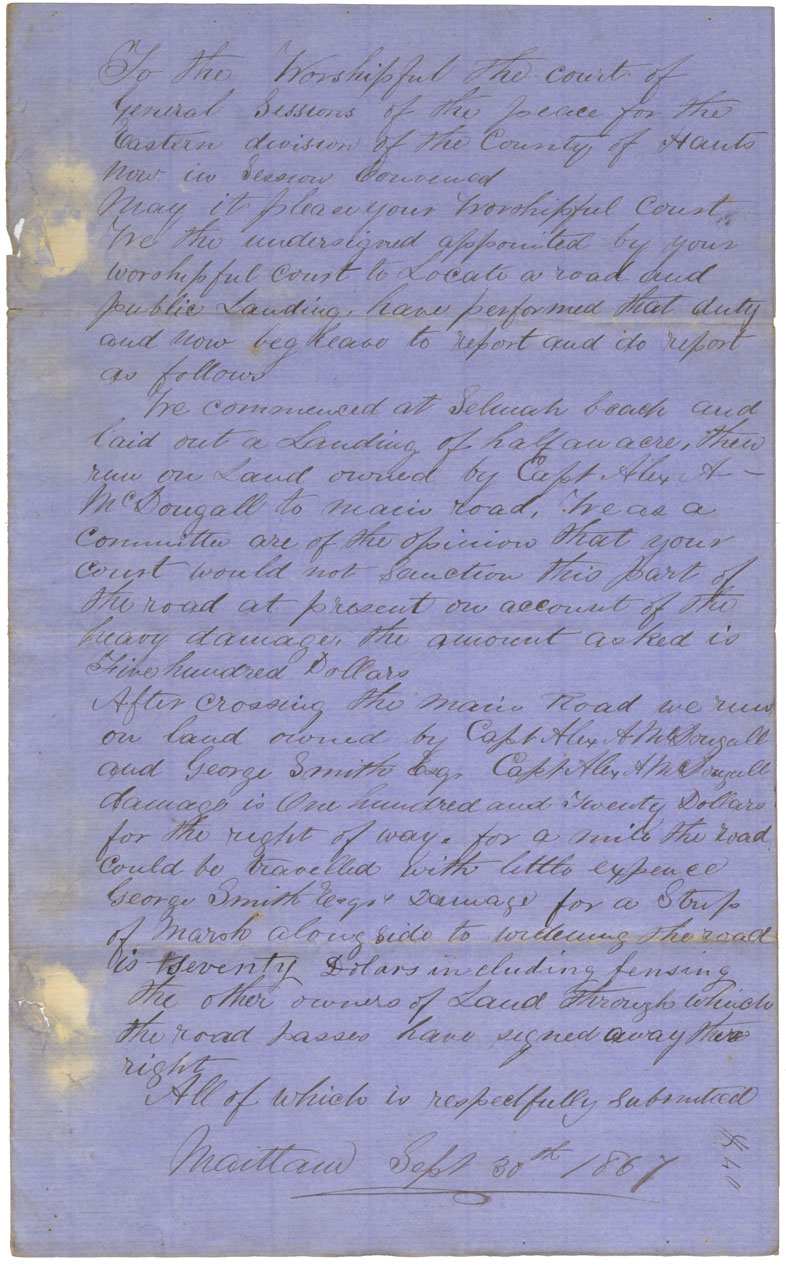 To the Worshipful the court of
General Sessions of the peace for the
Eastern division of the County of Hants
Now in Session Convened
May it please your Worshipful Court,
We the undersigned appointed by your
worshipful Court to Locate a road and
public Landing, have performed that duty
and now beg leave to report and do report
as follows
We commenced at Selmah beach and
laid out a Landing of half an acre, then
run on Land owned by Capt Alex A
McDougall to main road, We as a
Committee are of the opinion that your
court would not sanction this part of
the road at present on account of the
heavy damage, the amount asked is
Five hundred Dollars
After crossing the main Road we run
on land owned by Capt Alex A McDougall
and George Smith Esqr Capt Alex A McDougall
damage is One hundred and Twenty Dollars
for the right of way. for a mile the road
could be travelled with little expence
George Smith Esqr Damage for a Strip
of Marsh along side to widening the road
is seventy Dolars including fensing
the other owners of Land through which
the road passes have signed away
right
All of which is respectfully submitted
Maitland Sept 30th 1867